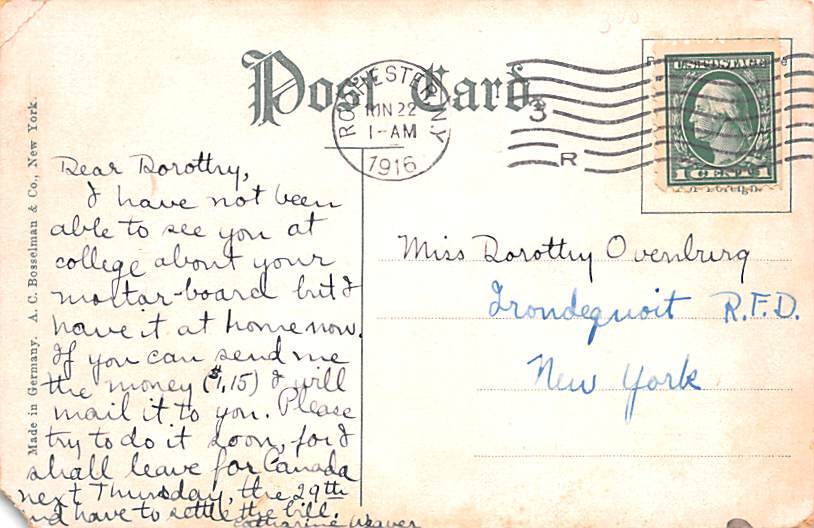 Post Card
ROCHESTER N.Y.
JUN 22
1-AM
1916
3
R
U.S. POSTAGE
1 CENT 1
Made in Germany. A. C. Bosselman & Co., New York.
Dear Dorothy,
I have not been
able to see you at
college about your
mortar-board but I
have it at home now.
If you can send me
the money ($1.15) I will
mail it to you. Please
try to do it soon, for I
shall leave for Canada
next Thursday, the 29th
and have to settle the bill.
Catharine Weaver
Miss Dorothy Ovenburg
Irondequoit R.F.D.
New York